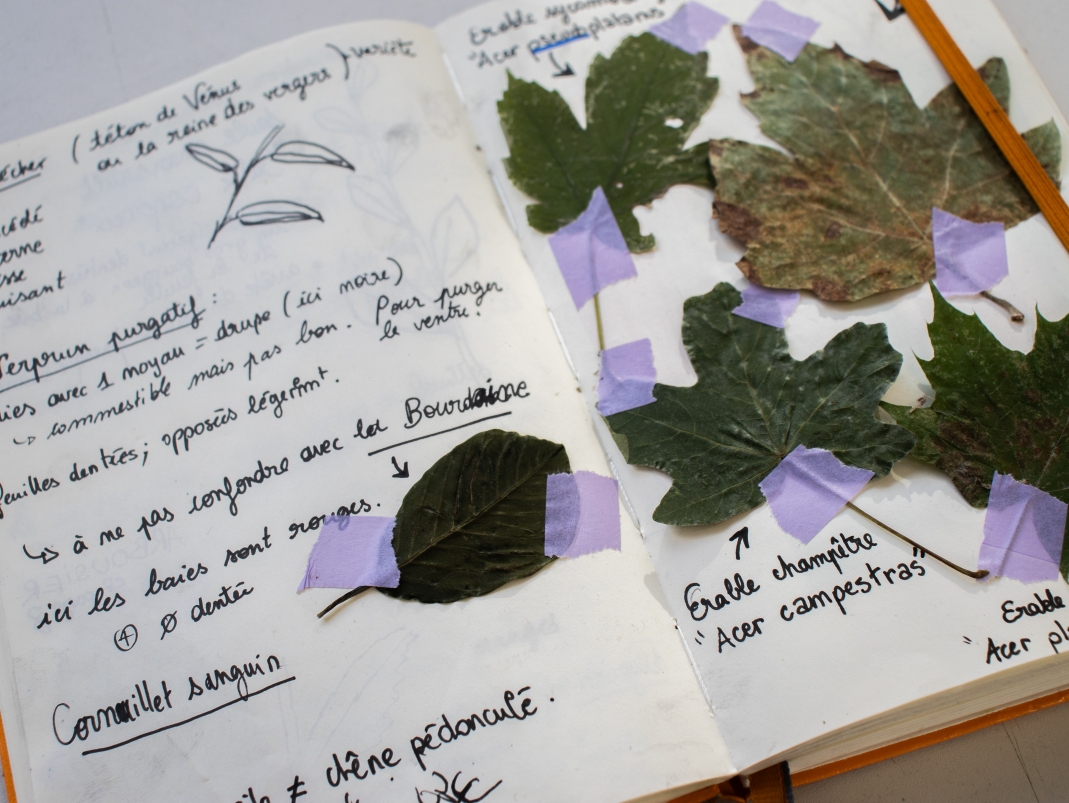 (téton de Vénus
ou la reine des vergers) variété
purgatif :
avec 1 noyau = drupe (ici noire)
↳ commestible mais pas bon. Pour purger
le ventre.
feuilles dentées; opposées légèrmt.
↳ à ne pas confondre avec la Bourdaine
ici les baies sont rouges.
④ Ø dentée
Cornouillet sanguin
≠ chêne pédonculé.
Erable
"Acer pseudoplatanus
Erable champître
"Acer campestras"
Erable
"Acer